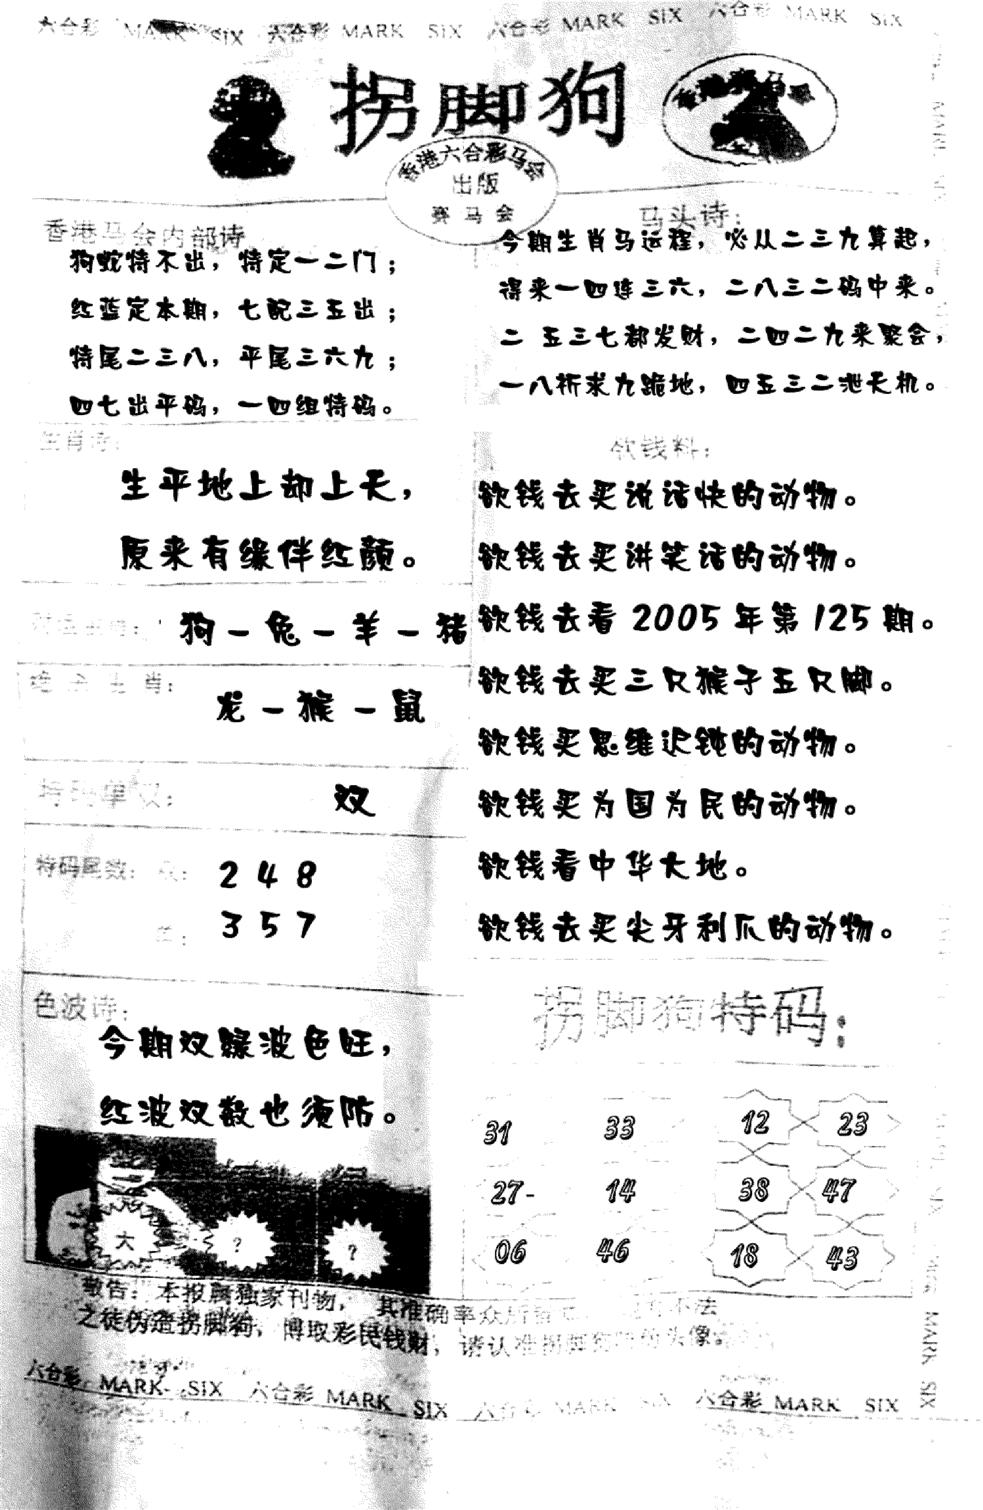 六合彩 MARK SIX 六合彩 MARK SIX 六合彩 MARK SIX 六合彩 MARK SIX
拐脚狗
香港赛马会
香港六合彩马会
出版
赛马会
香港马会内部诗
狗蛇特不出，特定一二门；
红蓝定本期，七配三五出；
特尾二三八，平尾三六九；
四七出平码，一四组特码。
马头诗：
今期生肖马运程，必从二三九算起，
得来一四连三六，二八三二码中来。
二 五三七都发财，二四二九来聚会，
一八祈求九跪地，四五三二泄天机。
生肖诗：
生平地上却上天，
原来有缘伴红颜。
狗－兔－羊－猪
绝杀生肖：
龙－猴－鼠
特码单双：
双
特码尾数：双：
2 4 8
单：
3 5 7
色波诗：
今期双绿波色旺，
红波双数也须防。
大
?
?
欲钱料：
欲钱去买说话快的动物。
欲钱去买讲笑话的动物。
欲钱去看 2005 年第 125 期。
欲钱去买三只猴子五只脚。
欲钱买思维迟钝的动物。
欲钱买为国为民的动物。
欲钱看中华大地。
欲钱去买尖牙利爪的动物。
拐脚狗特码：
31 33 12 23
27- 14 38 47
06 46 18 43
敬告：本报属独家刊物，其准确率众所皆 不法
之徒伪造拐脚狗，博取彩民钱财，请认准拐脚狗 头像。
六合彩 MARK SIX 六合彩 MARK SIX 六合彩 MARK SIX 六合彩 MARK SIX
MARK SIX